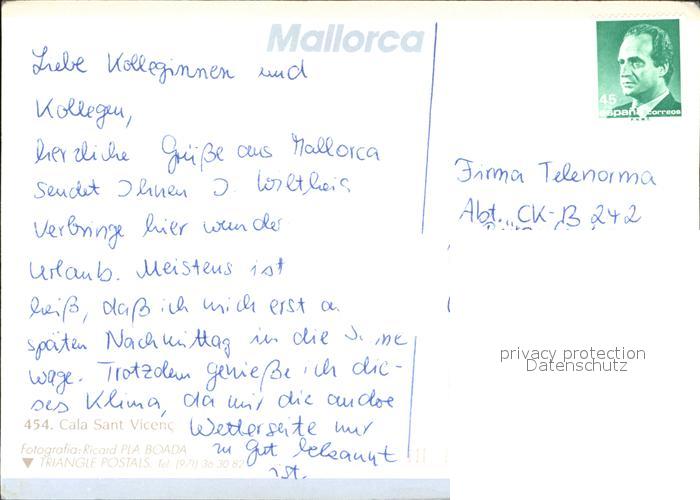 Mallorca
Liebe Kolleginnen und
Kollegen,
herzliche Grüße aus Mallorca
sendet Ihnen J.
Verbringe hier
Urlaub. Meistens ist
heiß, daß ich mich erst a
späten Nachmittag in die
wage. Trotzdem genieße ich die-
ses Klima, da mir die andere
Wetterseite nur
zu gut bekannt
ist.
454. Cala Sant Vicenç
Fotografia: Ricard PLA BOADA
▼ TRIANGLE POSTALS. Tel. (971) 36 30 82
45
España correos
Firma Telenorma
Abt. CK-B 242
privacy protection
Datenschutz